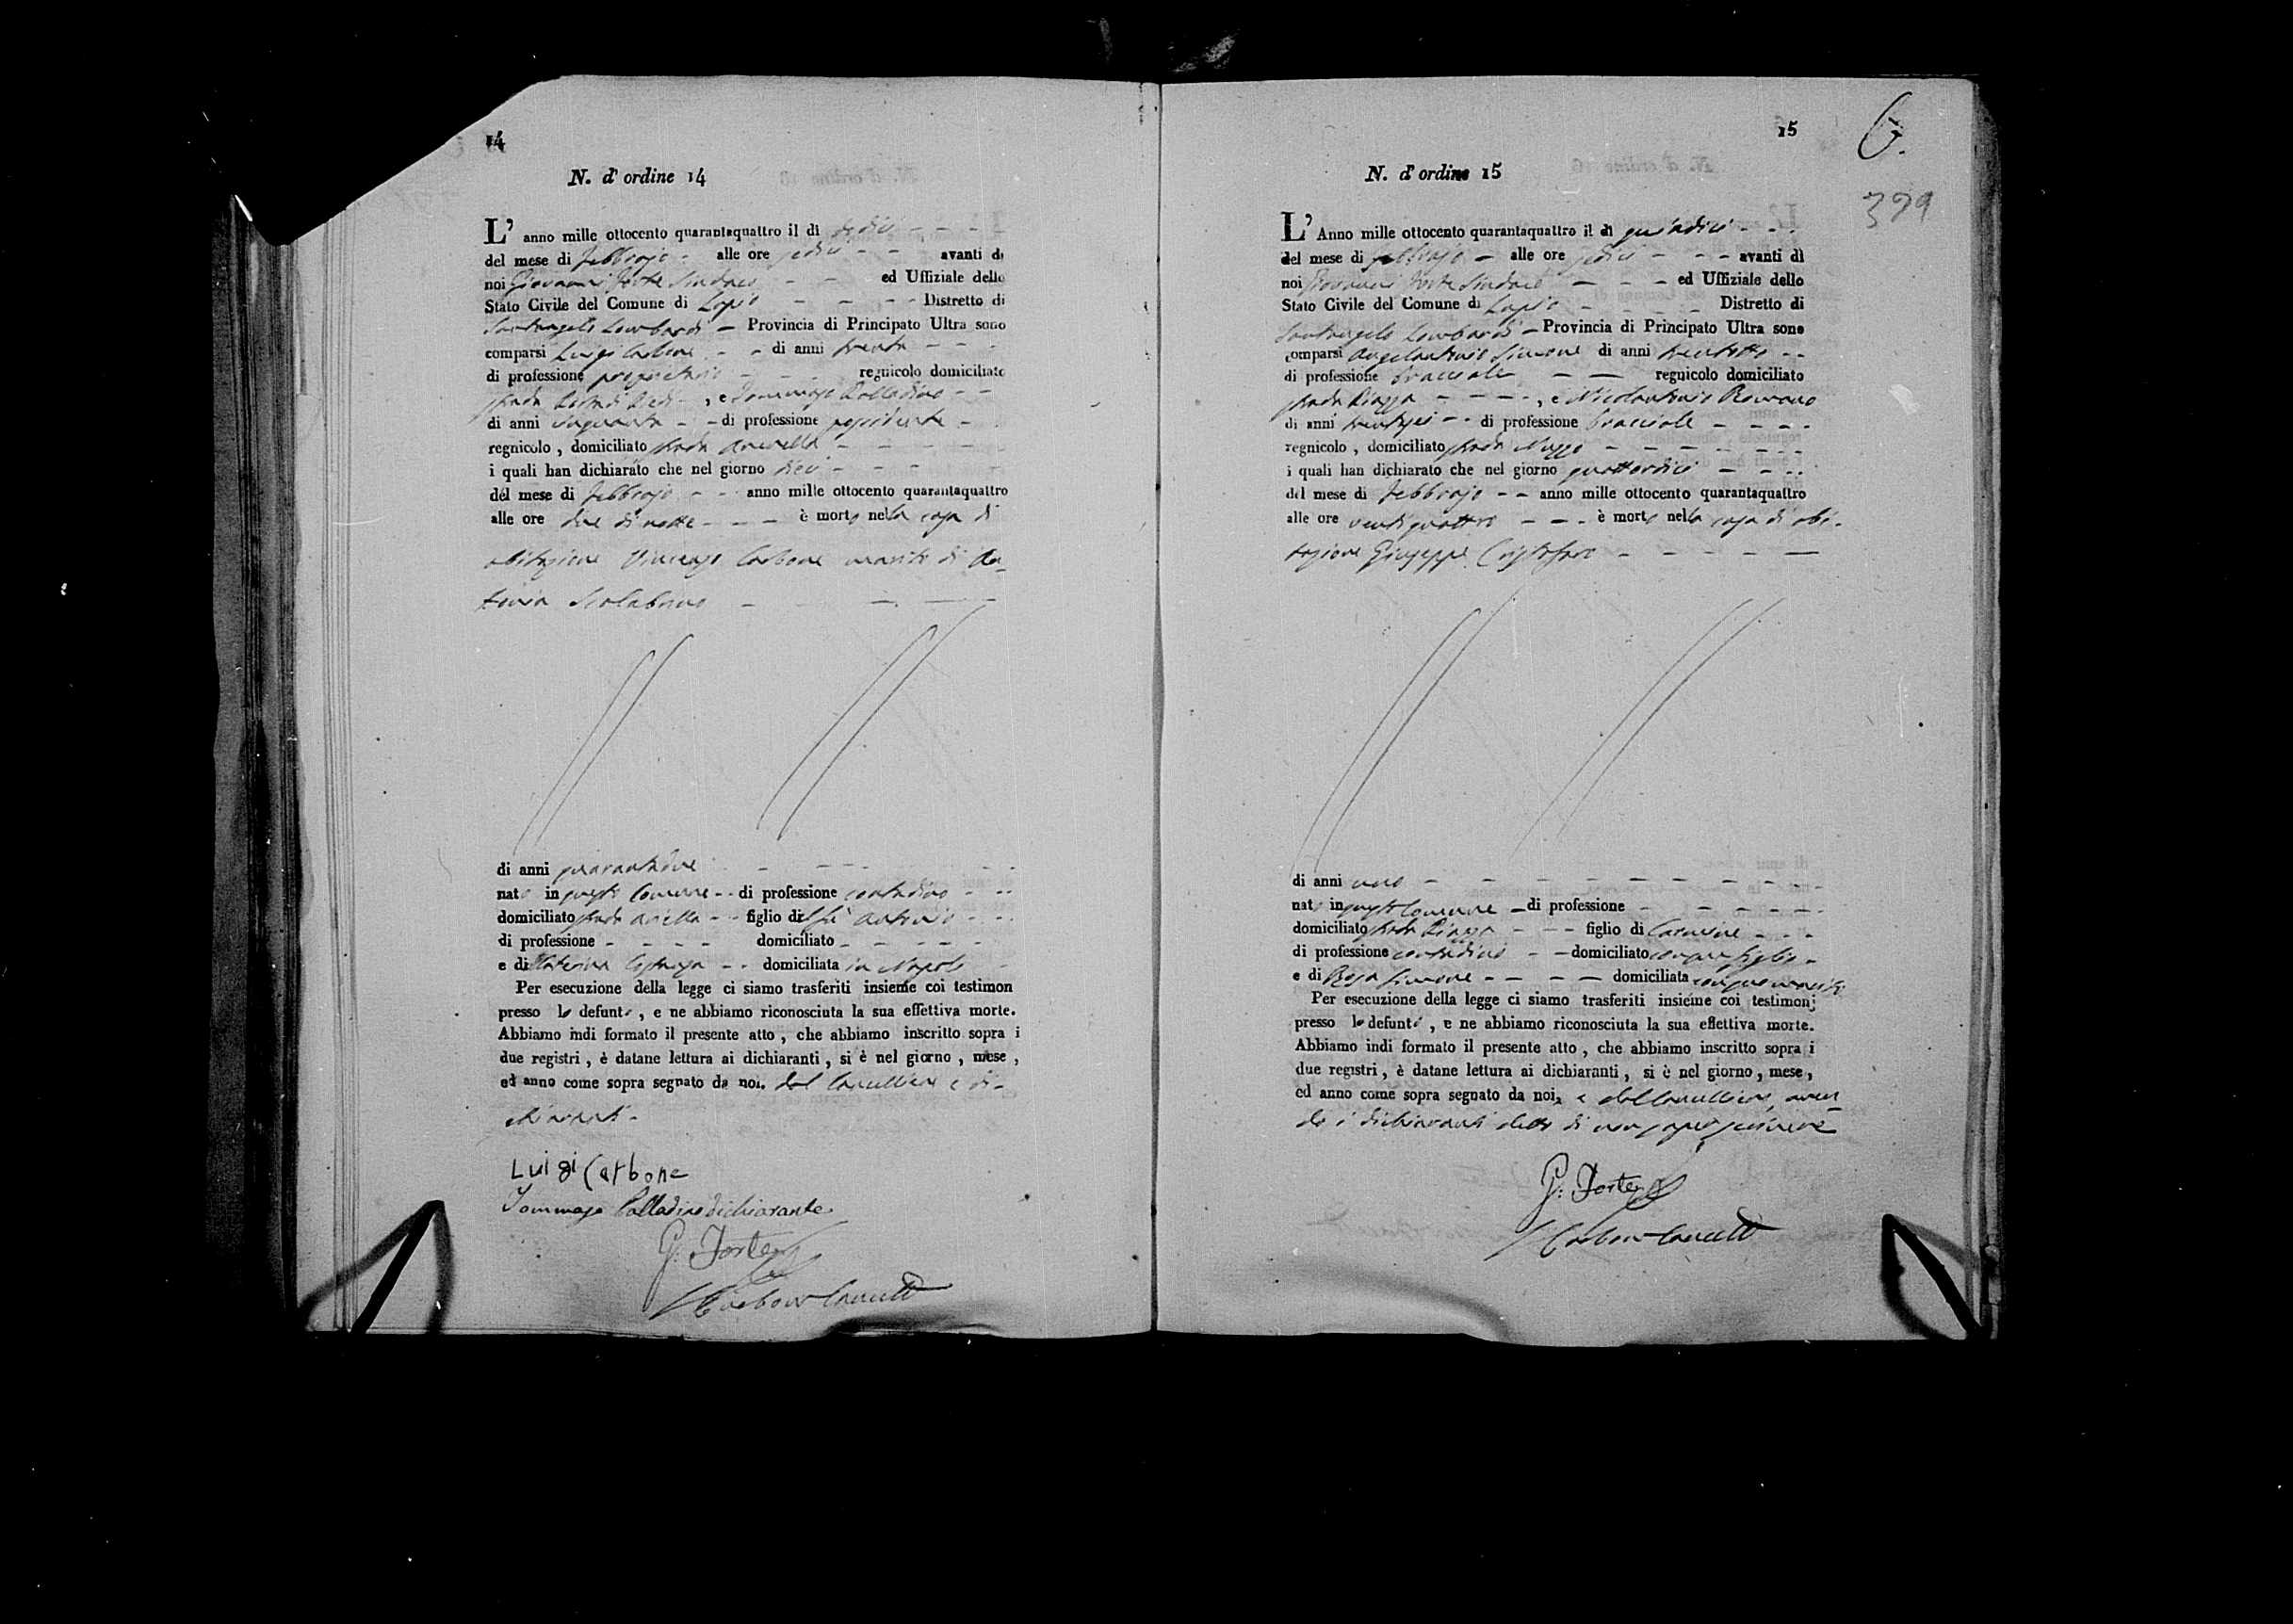 14
N. d' ordine 14
L' anno mille ottocento quarantaquattro il dì
del mese di febbrajo alle ore sedici avanti di
noi Giovanni Forte Sindaco ed Uffiziale dello
Stato Civile del Comune di Lapio Distretto di
Santangelo Lombardi Provincia di Principato Ultra sono
comparsi Luigi Carbone di anni trenta
di professione proprietario regnicolo domiciliato
strada , e Tommaso Palladino
di anni cinquanta di professione possidente
regnicolo , domiciliato strada
i quali han dichiarato che nel giorno dieci
del mese di febbrajo anno mille ottocento quarantaquattro
alle ore due di notte è morto nella casa di
abitazione Vincenzo Carbone marito di An-
tonia Scolabrino
di anni quarantadue
nato in questo Comune di professione contadino
domiciliato strada figlio di Antonio
di professione domiciliato
e di Caterina domiciliata in Napoli
Per esecuzione della legge ci siamo trasferiti insieme coi testimon
presso lo defunto , e ne abbiamo riconosciuta la sua effettiva morte.
Abbiamo indi formato il presente atto , che abbiamo inscritto sopra i
due registri , è datane lettura ai dichiaranti , si è nel giorno , mese ,
ed anno come sopra segnato da noi. dal Cancelliere e di-
chiaranti.
Luigi Carbone
Tommaso Palladino dichiarante
G. Forte
Carbone Cancell
15
6.
399
N. d' ordine 15
L' Anno mille ottocento quarantaquattro il dì quindici
del mese di febbrajo alle ore sedici avanti di
noi Giovanni Forte Sindaco ed Uffiziale dello
Stato Civile del Comune di Lapio Distretto di
Santangelo Lombardi Provincia di Principato Ultra sono
comparsi Angelantonio Simone di anni trentotto
di professione bracciale regnicolo domiciliato
strada Piazza , e Nicolantonio Romano
di anni trentasei di professione bracciale
regnicolo , domiciliato strada
i quali han dichiarato che nel giorno quattordici
del mese di febbrajo anno mille ottocento quarantaquattro
alle ore ventiquattro è morto nella casa di abi-
tazione Giuseppe Cristofaro
di anni uno
nato in questo Comune di professione
domiciliato strada Piazza figlio di Carmine
di professione contadino domiciliato con suo figlio
e di Rosa Simone domiciliata con suo marito
Per esecuzione della legge ci siamo trasferiti insieme coi testimonj
presso lo defunto , e ne abbiamo riconosciuta la sua effettiva morte.
Abbiamo indi formato il presente atto , che abbiamo inscritto sopra i
due registri , è datane lettura ai dichiaranti , si è nel giorno , mese ,
ed anno come sopra segnato da noi, e dal Cancelliere, aven-
do i dichiaranti detto di non saper scrivere
G. Forte
Carbone Cancell